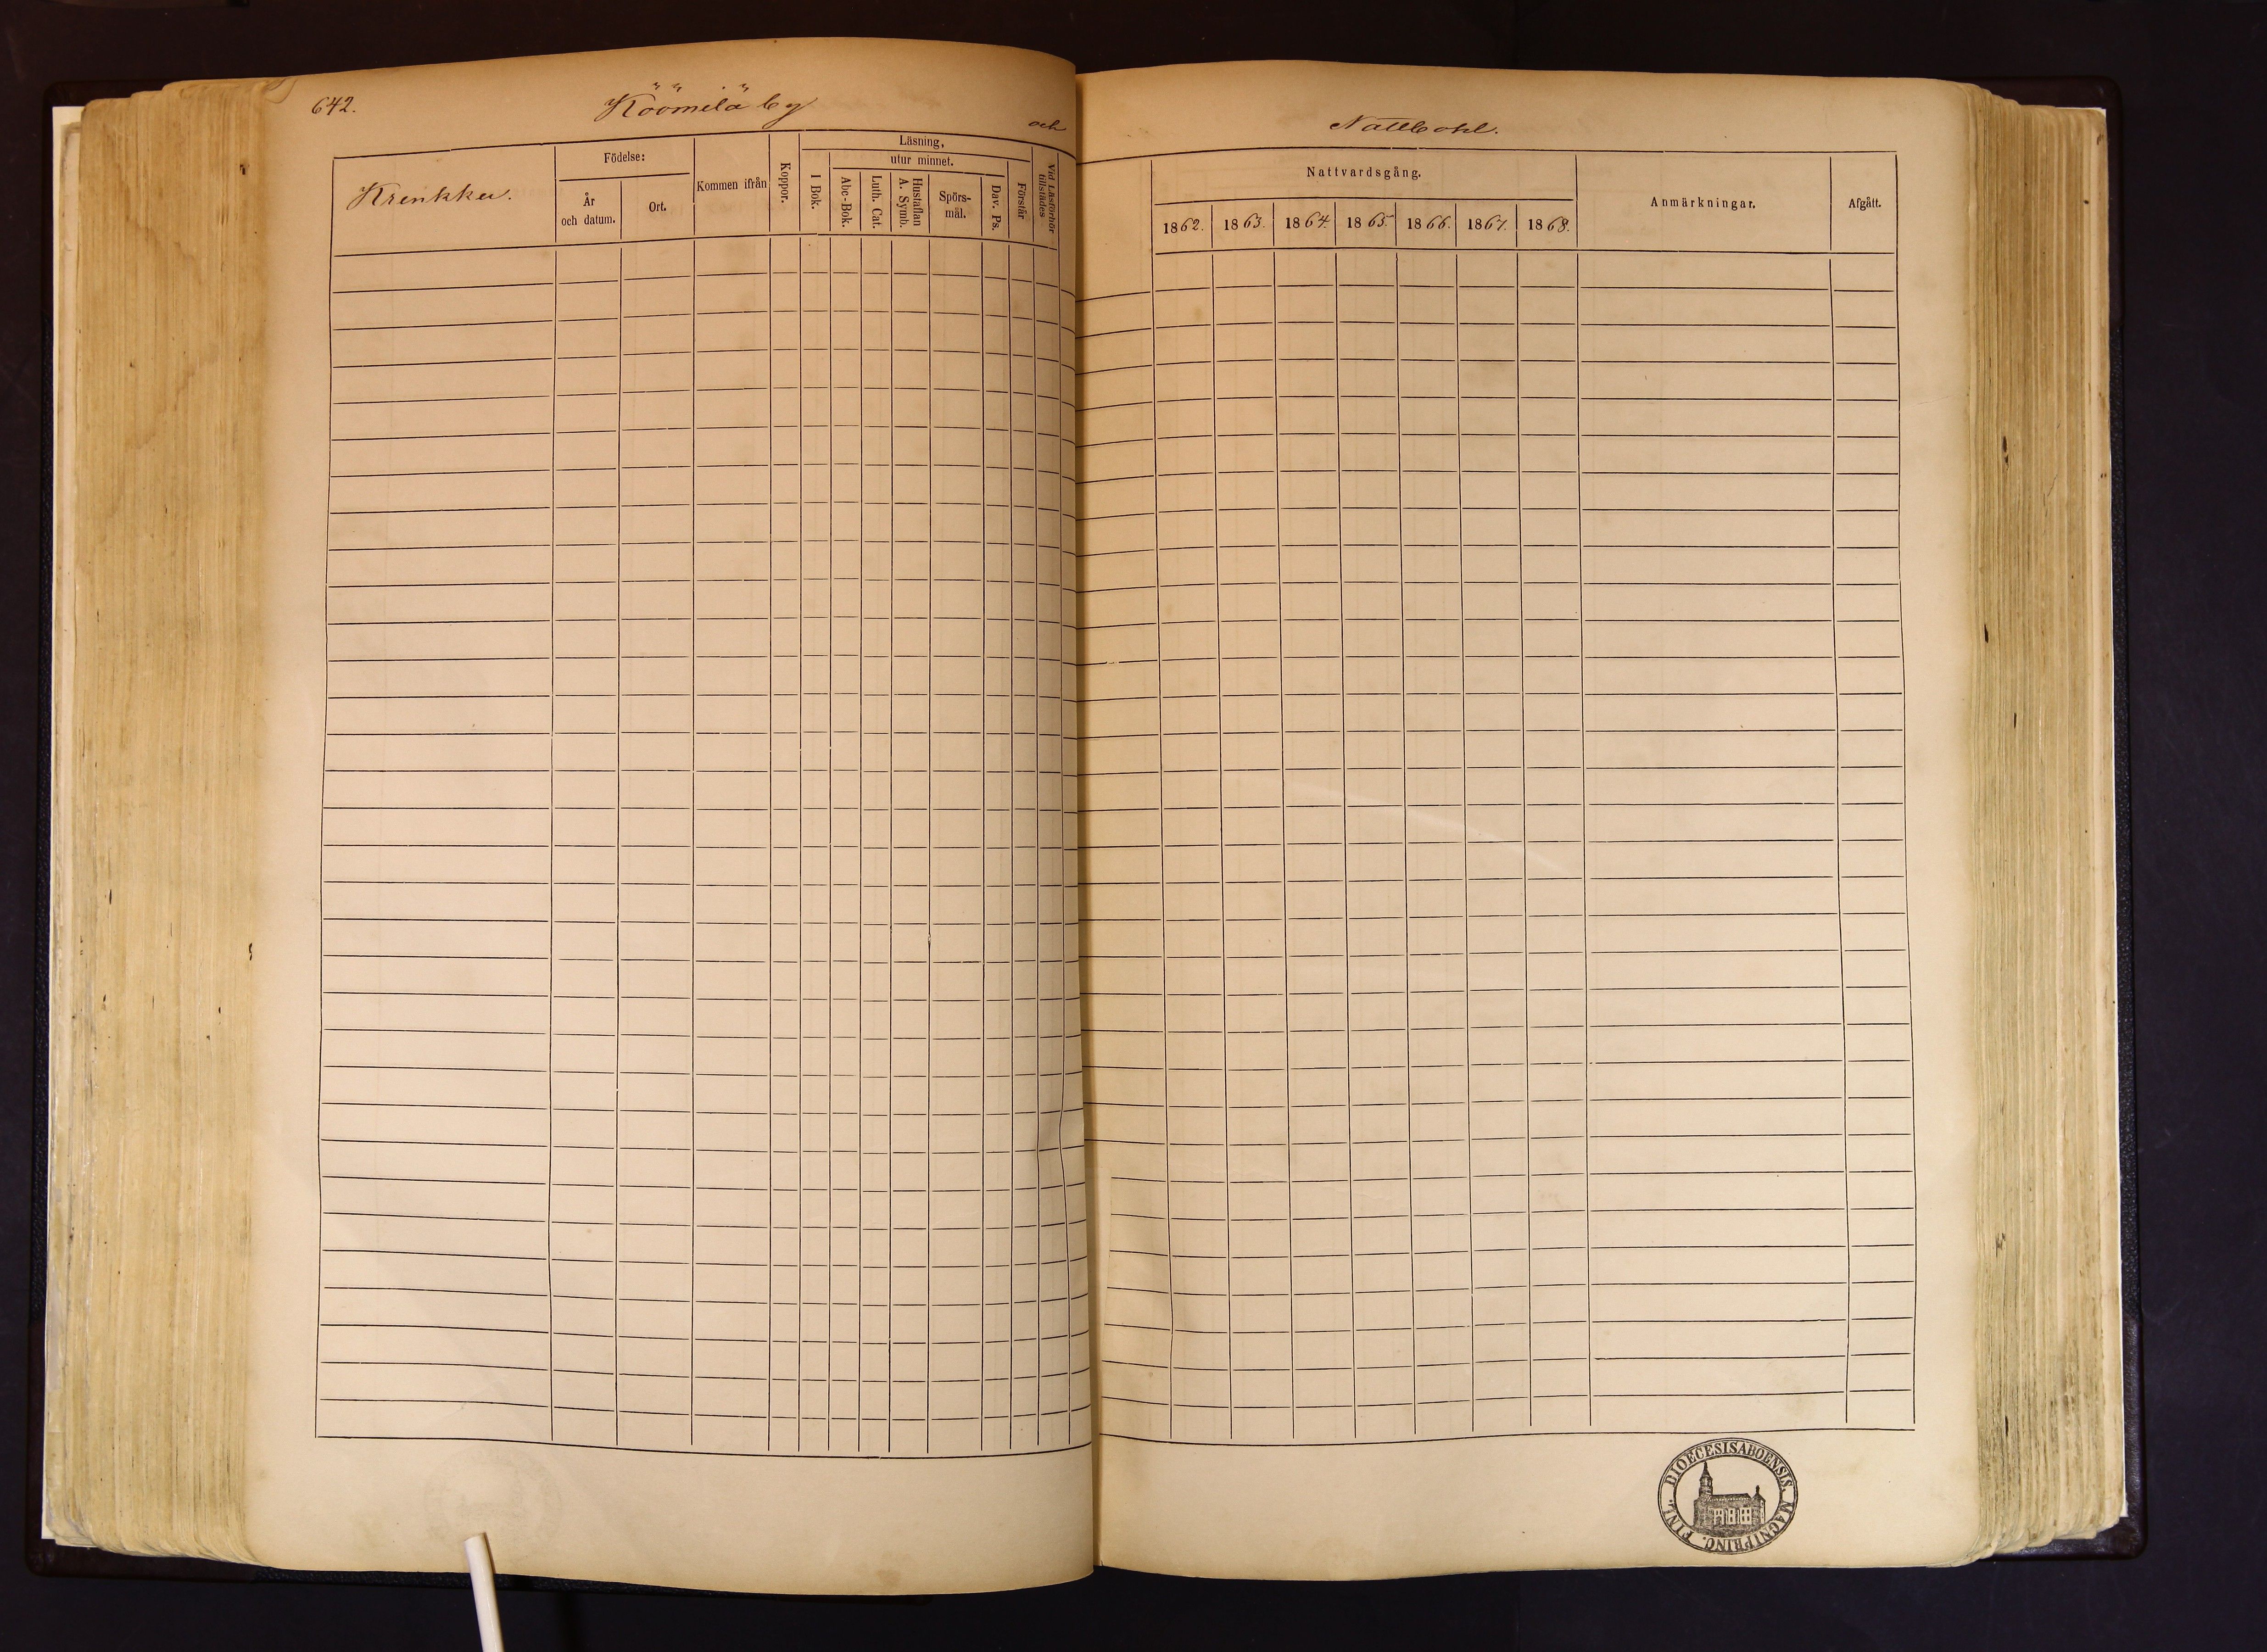 642.
Köömilä by
och
Nattbohl.
Krenkku.
Födelse:
År
och datum.
Ort.
Kommen ifrån
Koppor.
Läsning,
I Bok.
utur minnet.
Abc-Bok.
Luth. Cat.
Hustaflan
A. Symb.
Spörs-
mål.
Dav. Ps.
Förstår
Vid Läsförhör
tillstädes
Nattvardsgång.
1862. 1863. 1864. 1865. 1866. 1867. 1868.
Anmärkningar.
Afgått.
DIOECESIS ABOENSIS. MAGNI PRINC. FINL.